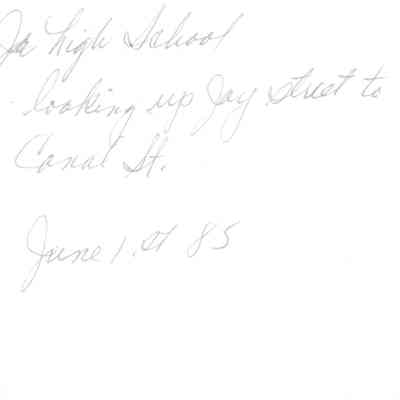 Jr High School
looking up Jay Street to
Canal St.
June 1.st 85